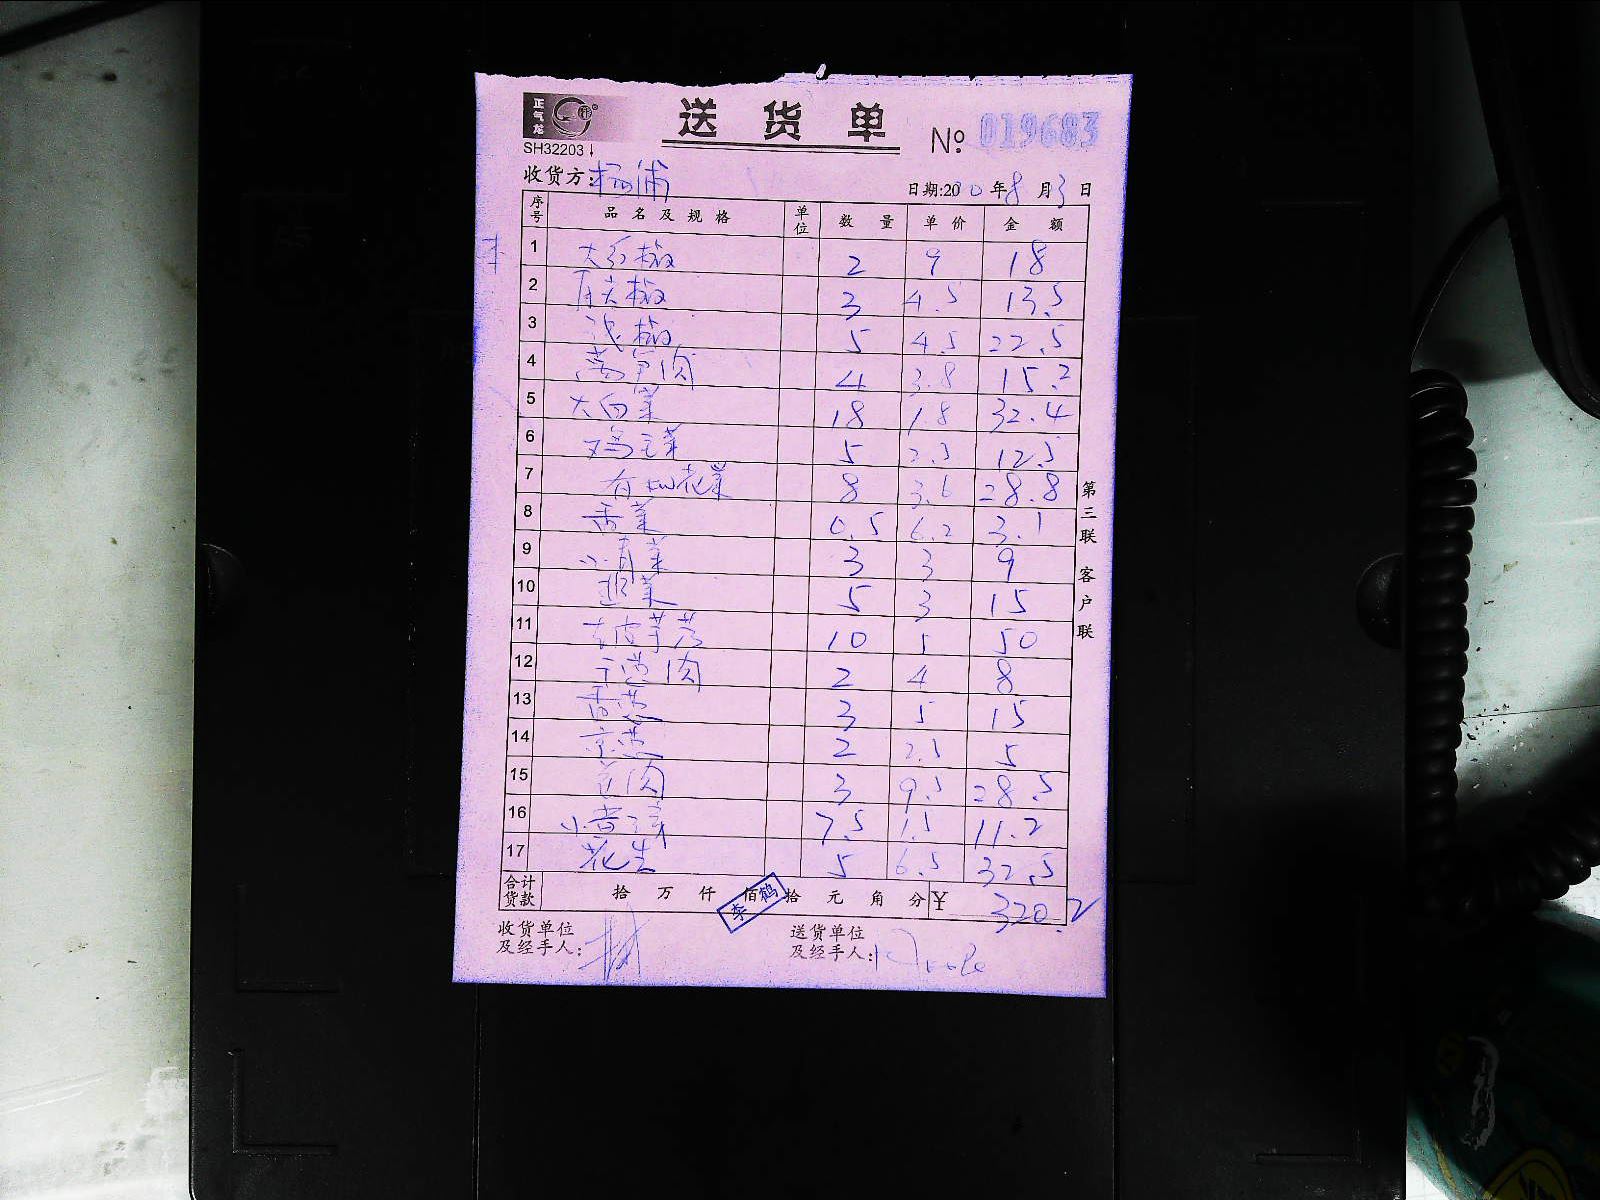 正气龙
送货单
No. 019683
SH32203
收货方: 杨浦
日期:20 20年8月3日
序号 品名及规格 单位 数量 单价 金额
1 大红椒 2 9 18
2 尖椒 3 4.5 13.5
3 泡椒 5 4.5 22.5
4 莴笋肉 4 3.8 15.2
5 大白菜 18 1.8 32.4
6 鸡毛菜 5 2.5 12.5
7 有机花菜 8 3.6 28.8
8 香菜 0.5 6.2 3.1
9 小青菜 3 3 9
10 韭菜 5 3 15
11 去皮芋艿 10 5 50
12 肉 2 4 8
13 香葱 3 5 15
14 京葱 2 2.5 5
15 肉 3 9.5 28.5
16 小 7.5 1.5 11.2
17 花生 5 6.5 32.5
合计货款 拾 万 仟 佰 拾 元 角 分 ¥ 320.2
李鹤
收货单位及经手人:
送货单位及经手人:
第三联 客户联